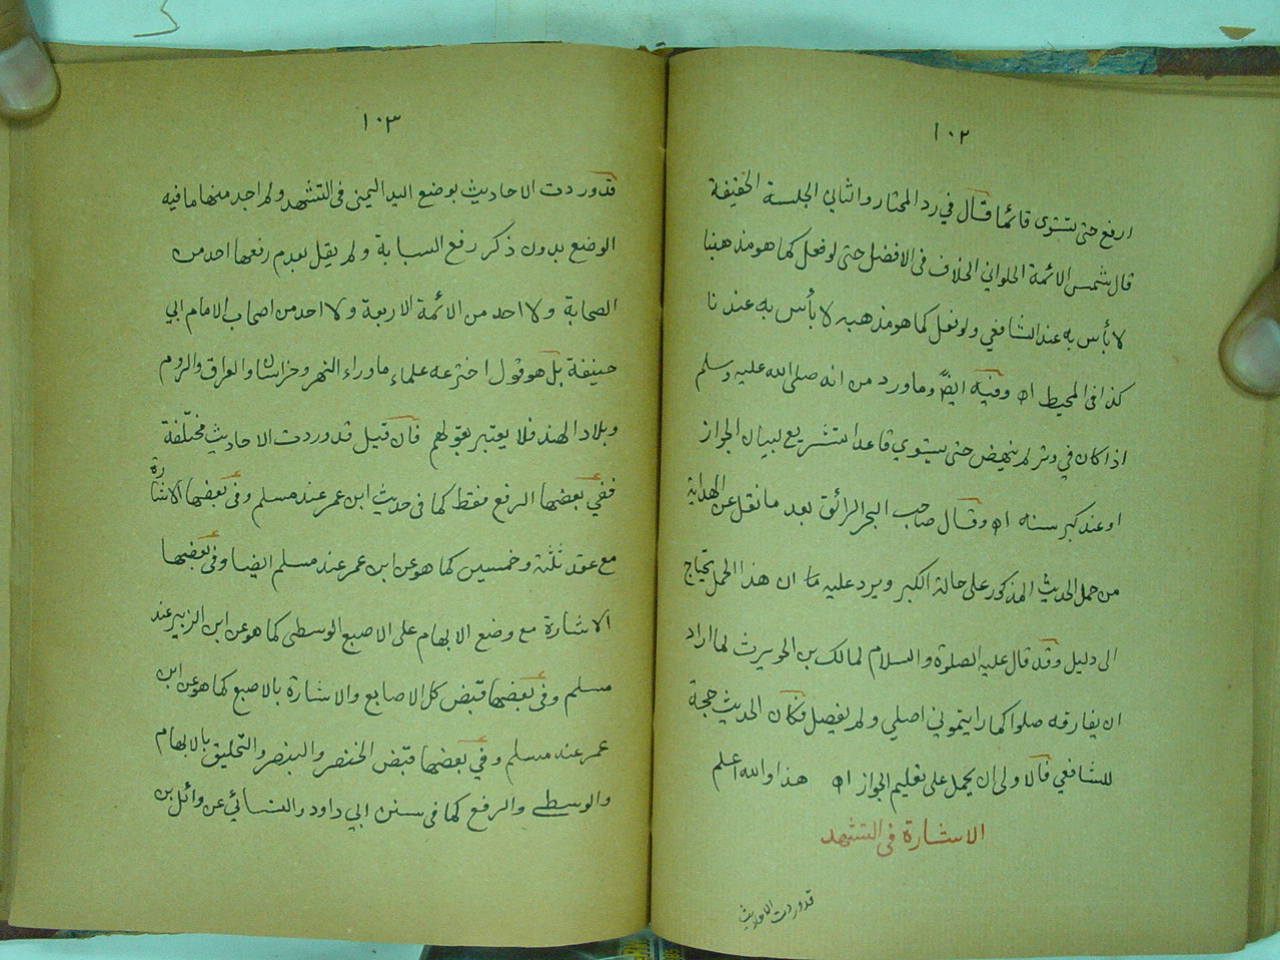 ١٠٢
ارفع حتى تستوى قائما قال في رد المحتار والثاني الجلسة الخفيفة
قال شمس الائمة الحلواني الخلاف فى الافضل حتى لو فعل كما هو مذهبنا
لا بأس به عند الشافعي ولو فعل كما هو مذهبه لا بأس به عندنا
كذا فى المحيط اه وفيه ايضا وما ورد من انه صلى الله عليه وسلم
اذا كان في وتر لم ينهض حتى يستوي قاعدا تشريع لبيان الجواز
او عند كبر سنه اه وقال صاحب البحر الرائق بعد ما نقل عن الهداية
من حمل الحديث المذكور على حالة الكبر ويرد عليه ما ان هذا الحمل يحتاج
الى دليل وقد قال عليه الصلوة والسلام لمالك بن الحويرث لما اراد
ان يفارقه صلوا كما رايتموني اصلي ولم يفصل فكان الحديث حجة
للشافعي فالاولى ان يحمل على تعليم الجواز اه هذا والله اعلم
الاشارة فى التشهد
قد وردت الاحاديث
١٠٣
قد وردت الاحاديث بوضع اليد اليمنى فى التشهد ولم اجد منها ما فيه
الوضع بدون ذكر رفع السبابة ولم يقل بعدم رفعها احد من
الصحابة ولا احد من الائمة الاربعة ولا احد من اصحاب الامام ابي
حنيفة بل هو قول اخترعه علماء ما وراء النهر وخراسان والعراق والروم
وبلاد الهند فلا يعتبر بقولهم فان قيل قد وردت الاحاديث مختلفة
ففي بعضها الرفع فقط كما فى حديث ابن عمر عند مسلم وفى بعضها الاشارة
مع عقد ثلثة وخمسين كما هو عن ابن عمر عند مسلم ايضا وفى بعضها
الاشارة مع وضع الابهام على الاصبع الوسطى كما هو عن ابن الزبير عند
مسلم وفى بعضها قبض كل الاصابع والاشارة بالاصبع كما هو عن ابن
عمر عند مسلم وفي بعضها قبض الخنصر والبنصر والتحليق بالابهام
والوسطى والرفع كما فى سنن ابي داود والنسائي عن وائل بن